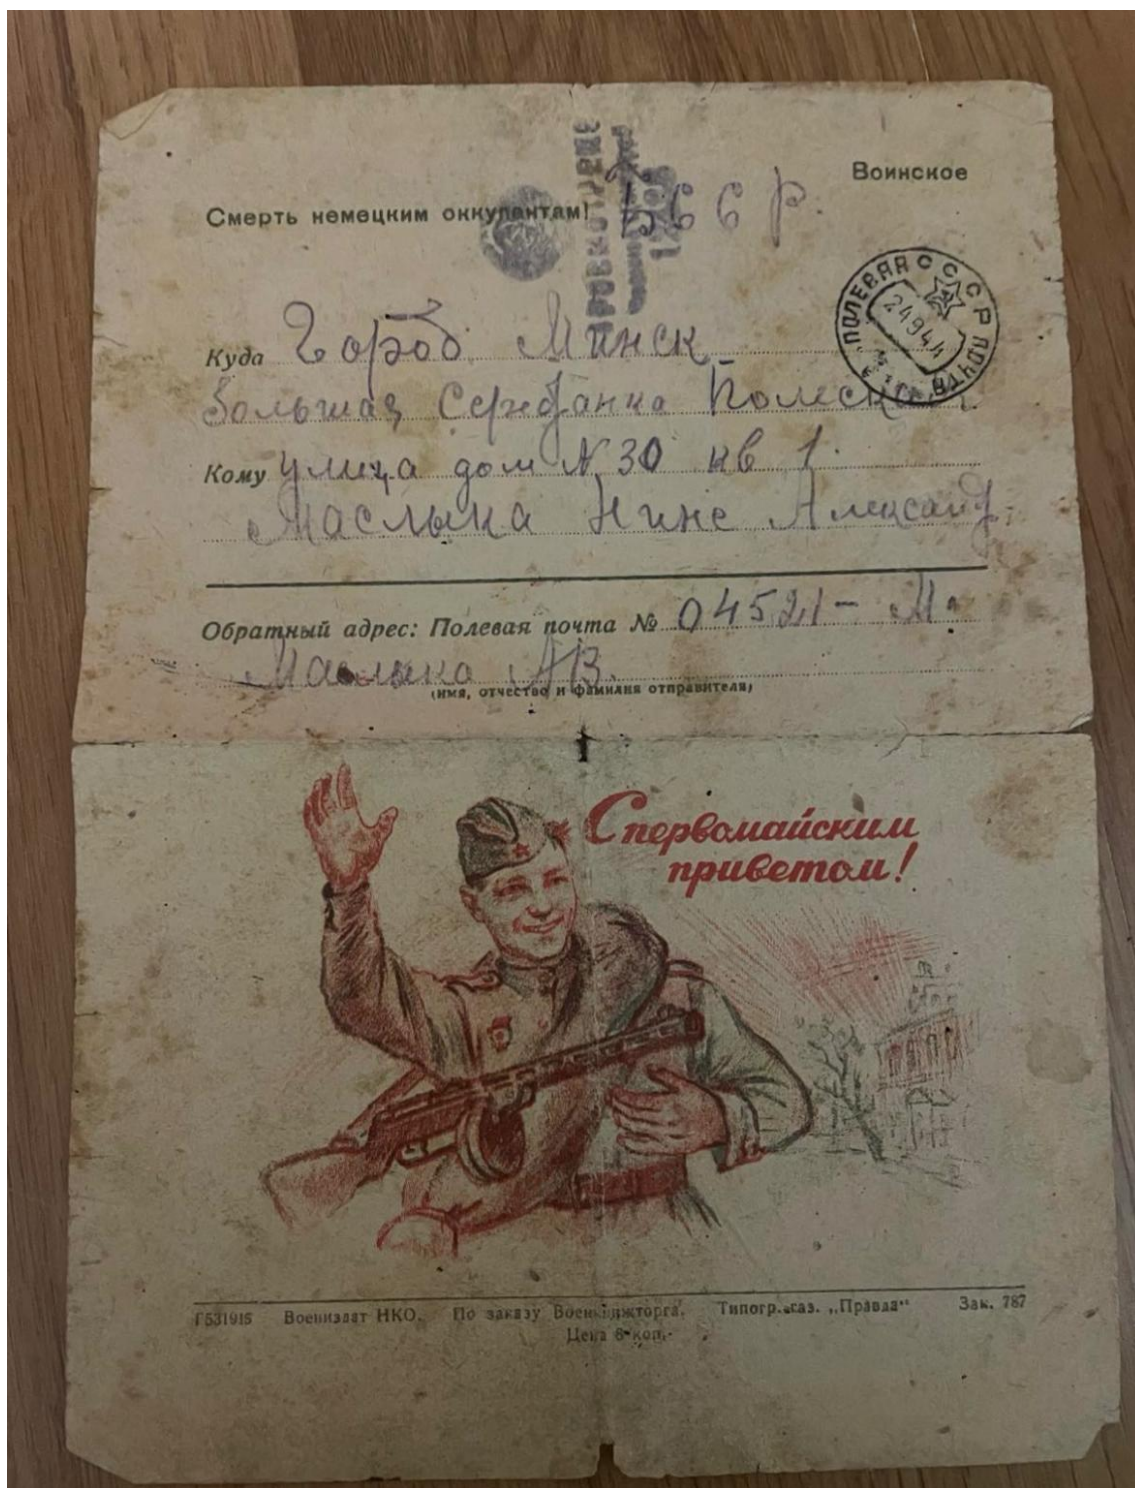 Воинское
Смерть немецким оккупантам!
ПРОВЕРЕНО
66 р.
ПОЛЕВАЯ СССР ПОЧТА
24 9 44
Куда Город Минск
Большая Серебянка Полеская
Кому улица дом N 30 кв 1.
Маслыка Нине Александ
Обратный адрес: Полевая почта № 04521-М.
Маслыка АВ.
(имя, отчество и фамилия отправителя)
С первомайским
приветом!
Г531915 Воениздат НКО. По заказу Военкнижторга. Типогр. газ. „Правда“ Зак. 787
Цена 6 коп.